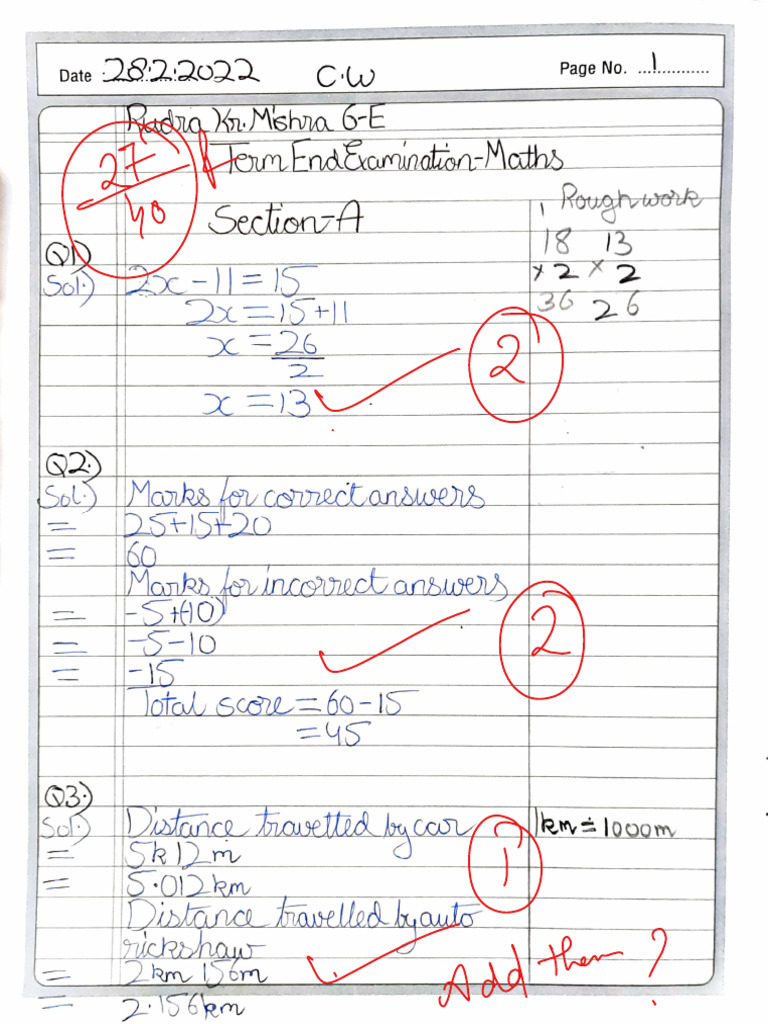 Date 28.2.2022 C.W Page No. 1
Rudra Kr. Mishra 6-E
27/40
Term End Examination-Maths
Section-A
Rough work
18 13
×2 ×2
36 26
Q1)
Sol.) 2x-11=15
2x=15+11
x=26/2
x=13
2
Q2.)
Sol.) Marks for correct answers
= 25+15+20
= 60
Marks for incorrect answers
= -5+(-10)
= -5-10
= -15
Total score = 60-15
= 45
2
Q3.)
Sol.) Distance travetted by car
1km = 1000m
= 5k 12m
= 5.012km
1
Distance travelled by auto
rickshaw
= 2km 156m
= 2.156km
Add them ?